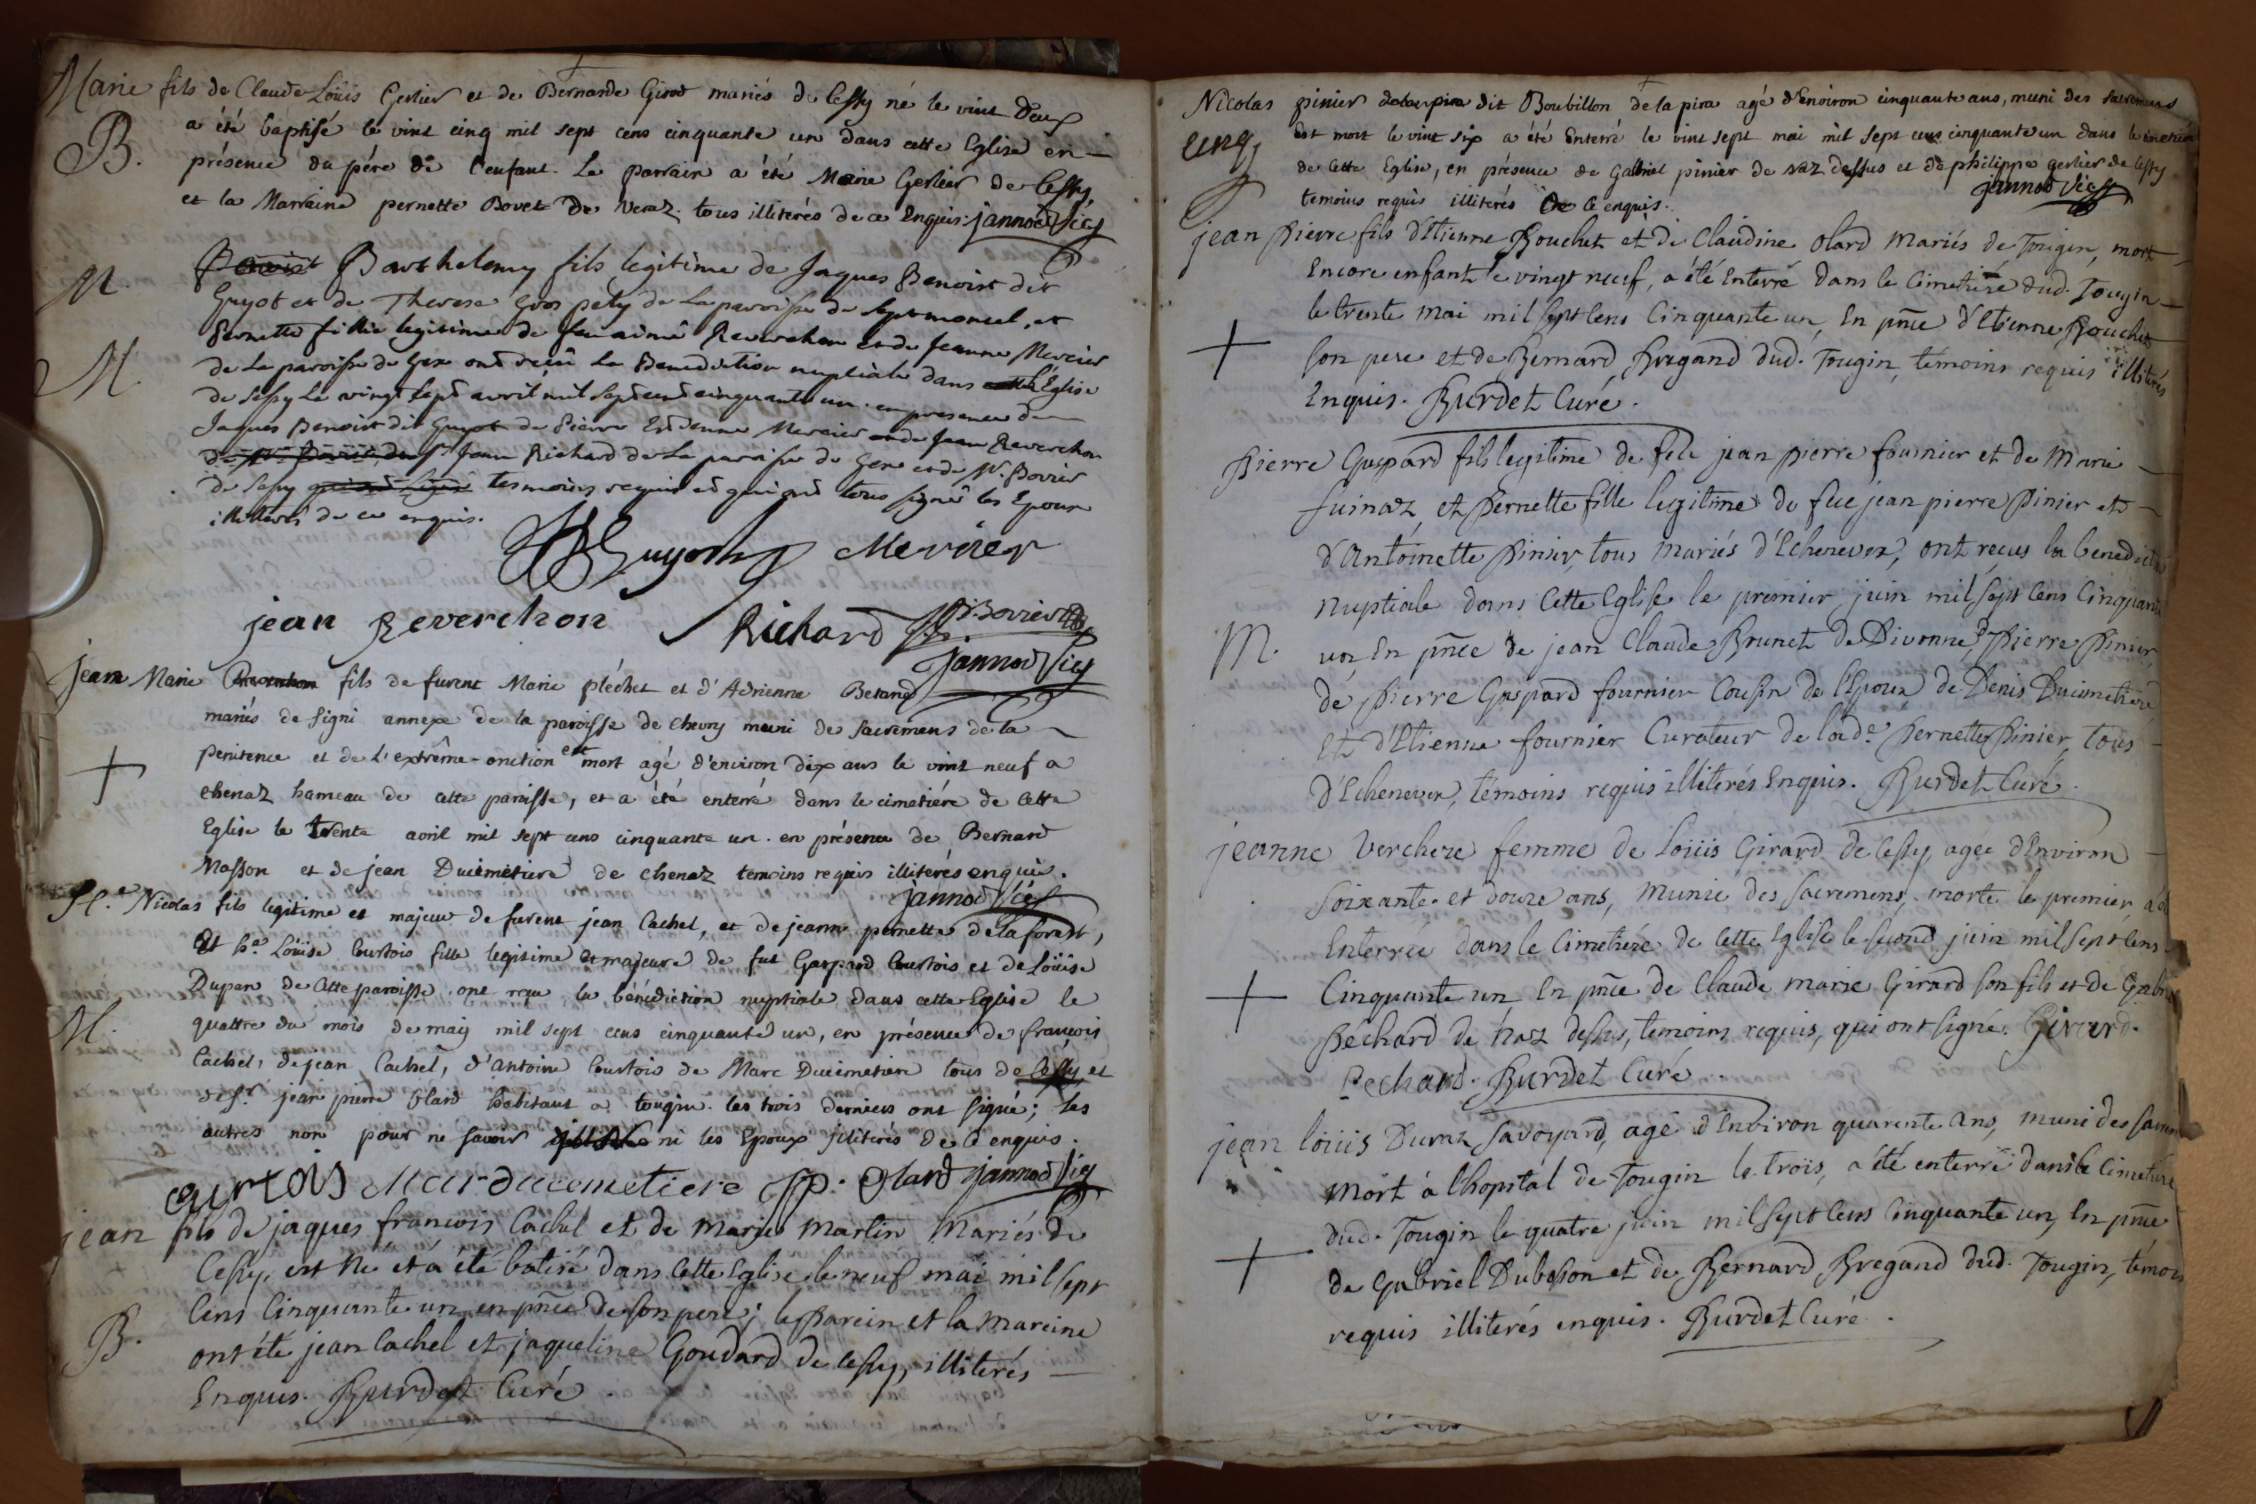 Marie fils de Claude Loüis Gerlier et de Bernarde Girod mariés de Cessy né le vint Deux
B. a été baptisé le vint cinq mil sept cens cinquante un dans cette Eglise en
présence du pére de l'enfant. Le parrain a été Marie Gerlier de Cessy
et la Marraine pernette Bovet de Veraz tous illiterés de ce Enquis. jannod Vic
M. Barthelemy fils legitime de Jaques Benoist dit
Guyot et de Therese Gros pety de La paroisse de Septmoncel, et
Pernette fillie legitime de feu aimé Reverchon et de Jeanne Mercier
M. de La paroisse de Gex ont reçû La Benediction nuptiale dans l'Église
de Sessy Le vingt sept avril mil sept cent cinquante un. en presence de
Jaques Benoist dit Guyot de Pierre Mercier et de Jean Reverchon
Sr. Jean Richard de La paroisse de Gex et de Bovier
de Sessy tesmoins requis et qui ont tous signé les Epoux
illitteres de ce enquis.
Guyot Mercier
jean Reverchon Richard Bovier
jannod Vic
jean Marie fils de furent Marie pléchet et d'Adrienne Betand
mariés de Signi annexe de la paroisse de Chevry muni de sacremens de la
penitence et de l'extrême-onction est mort agé d'environ dix ans le vint neuf a
+ chenaz hameau de cette paroisse, et a été enterré dans le cimetiére de cette
Eglise le trente avril mil sept cens cinquante un. en présence de Bernard
Masson et de jean Ducimetiere de chenaz temoins requis illiterés enquis.
jannod Vic
Nicolas fils legitime et majeur de furent jean Cachel, et de jeanne pernette de la forest,
et Loüise Courtois fille legitime et majeure de fut Gaspard Courtois et de Loüise
Dupan de cette paroisse. ont reçu la bénédiction nuptiale dans cette Eglise le
M. quattre du mois de maÿ mil sept cens cinquante un, en présence de françois
Cachel, de jean Cachel, d'Antoine Courtois de Marc Ducimetiere tous de Cessy, et
de Sr. jean pierre Olard habitant a tougin. les trois derniers ont signé; les
autres non pour ne savoir ni les Epoux illiterés de ce enquis.
curtois Marc ducemetiere jp. Olard jannod Vic
jean fils de jaques françois Cachel et de Marie Martin Mariés de
Cessy, est né et a été batisé dans Cette Eglise le neuf mai mil sept
Cens Cinquante un en pñce de son pere; le Parein et la Mareine
B. ont éte jean Cachel et jaqueline Goudard de Cessy, illiterés
Enquis. Burdet Curé.
Nicolas pinier dit Boubillon de la pira agé d'Environ cinquante ans, muni des sacremens
est mort le vint six a été Enterré le vint sept mai mil sept cens cinquante un dans le cimetiére
de Cette Eglise, en présence de Gabriel pinier de naz dessus et de philippe gerlier de Cessy
temoins requis illiterés de ce enquis. jannod Vic
jean Pierre fils d'Etienne Bouchet et de Claudine Olard Mariés de Tougin, mort
Encore enfant le vingt neuf, a été Enterré dans le Cimetiére dud. Tougin
le trente mai mil sept Cens Cinquante un, En pñce d'Etienne Bouchet
+ son pere et de Bernard Bregand dud. Tougin, témoins requis illiterés
Enquis. Burdet Curé.
Pierre Gaspard fils legitime de feu jean pierre fournier et de Marie
fuinaz et Pernette fille legitime de feu jean pierre Pinier et
d'Antoinette Pinier, tous Mariés d'Echenevex, ont reçus la benedictio
Nuptiale dans Cette Eglise le premier juin mil Sept Cens Cinquante
M. un En pñce de jean Claude Brunet de Divonne, Pierre Pinier,
de Pierre Gaspard fournier Cousin de l'Epoux de Denis Ducimetiere
Et d'Etienne fournier Curateur de lade. Pernette Pinier, tous
d'Echenevex, témoins requis illiterés Enquis. Burdet Curé.
jeanne Verchere femme de Loüis Girard de Cessy agée d'Environ
Soixante et douze ans, Munie des Sacremens, morte le premier, a é
Enterrée dans le Cimetiére de Cette Eglise le second juin mil Sept Cens
+ Cinquante un En pñce de Claude Marie Girard son fils et de Gabri
Pechard de Naz dessus, temoins requis, qui ont signé. Girard.
Pechard. Burdet Curé.
jean Loüis Duraz Savoyard, agé d'Environ quarente Ans, muni des Sacrem
Mort à l'hopital de Tougin le trois, a été enterré dans le Cimetiére
dud. Tougin le quatre juin mil Sept Cens Cinquante un, En pñce
+ de Gabriel Duboson et de Bernard Bregand dud. Tougin, témoins
requis illiterés enquis. Burdet Curé.